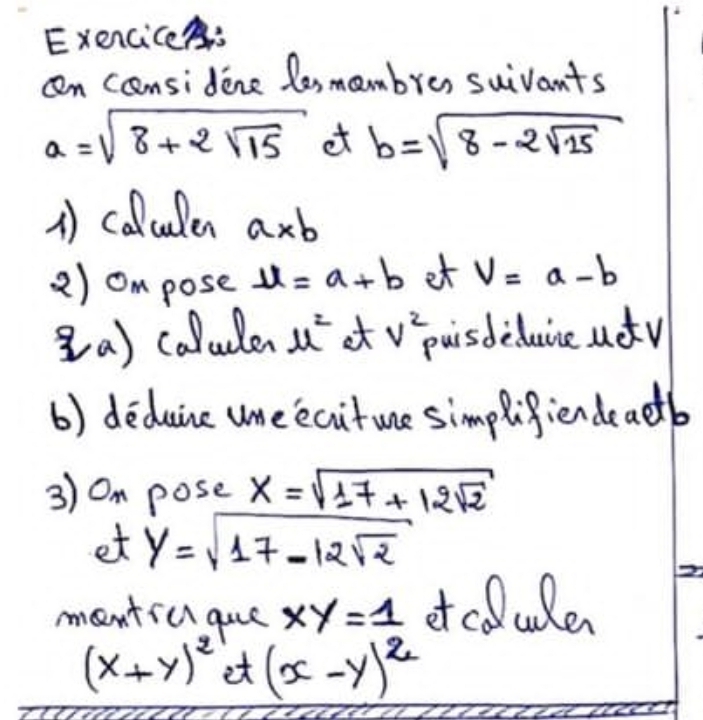 Exercice 1:
on considére les nombres suivants
a = √(8 + 2√15) et b = √(8 - 2√15)
1) calculer a×b
2) On pose u = a + b et V = a - b
a) calculer u² et v² puis déduire u et V
b) déduire une écriture simplifier de a et b
3) On pose X = √(17 + 12√2)
et Y = √(17 - 12√2)
montrer que XY = 1 et calculer
(X + Y)² et (x - Y)²